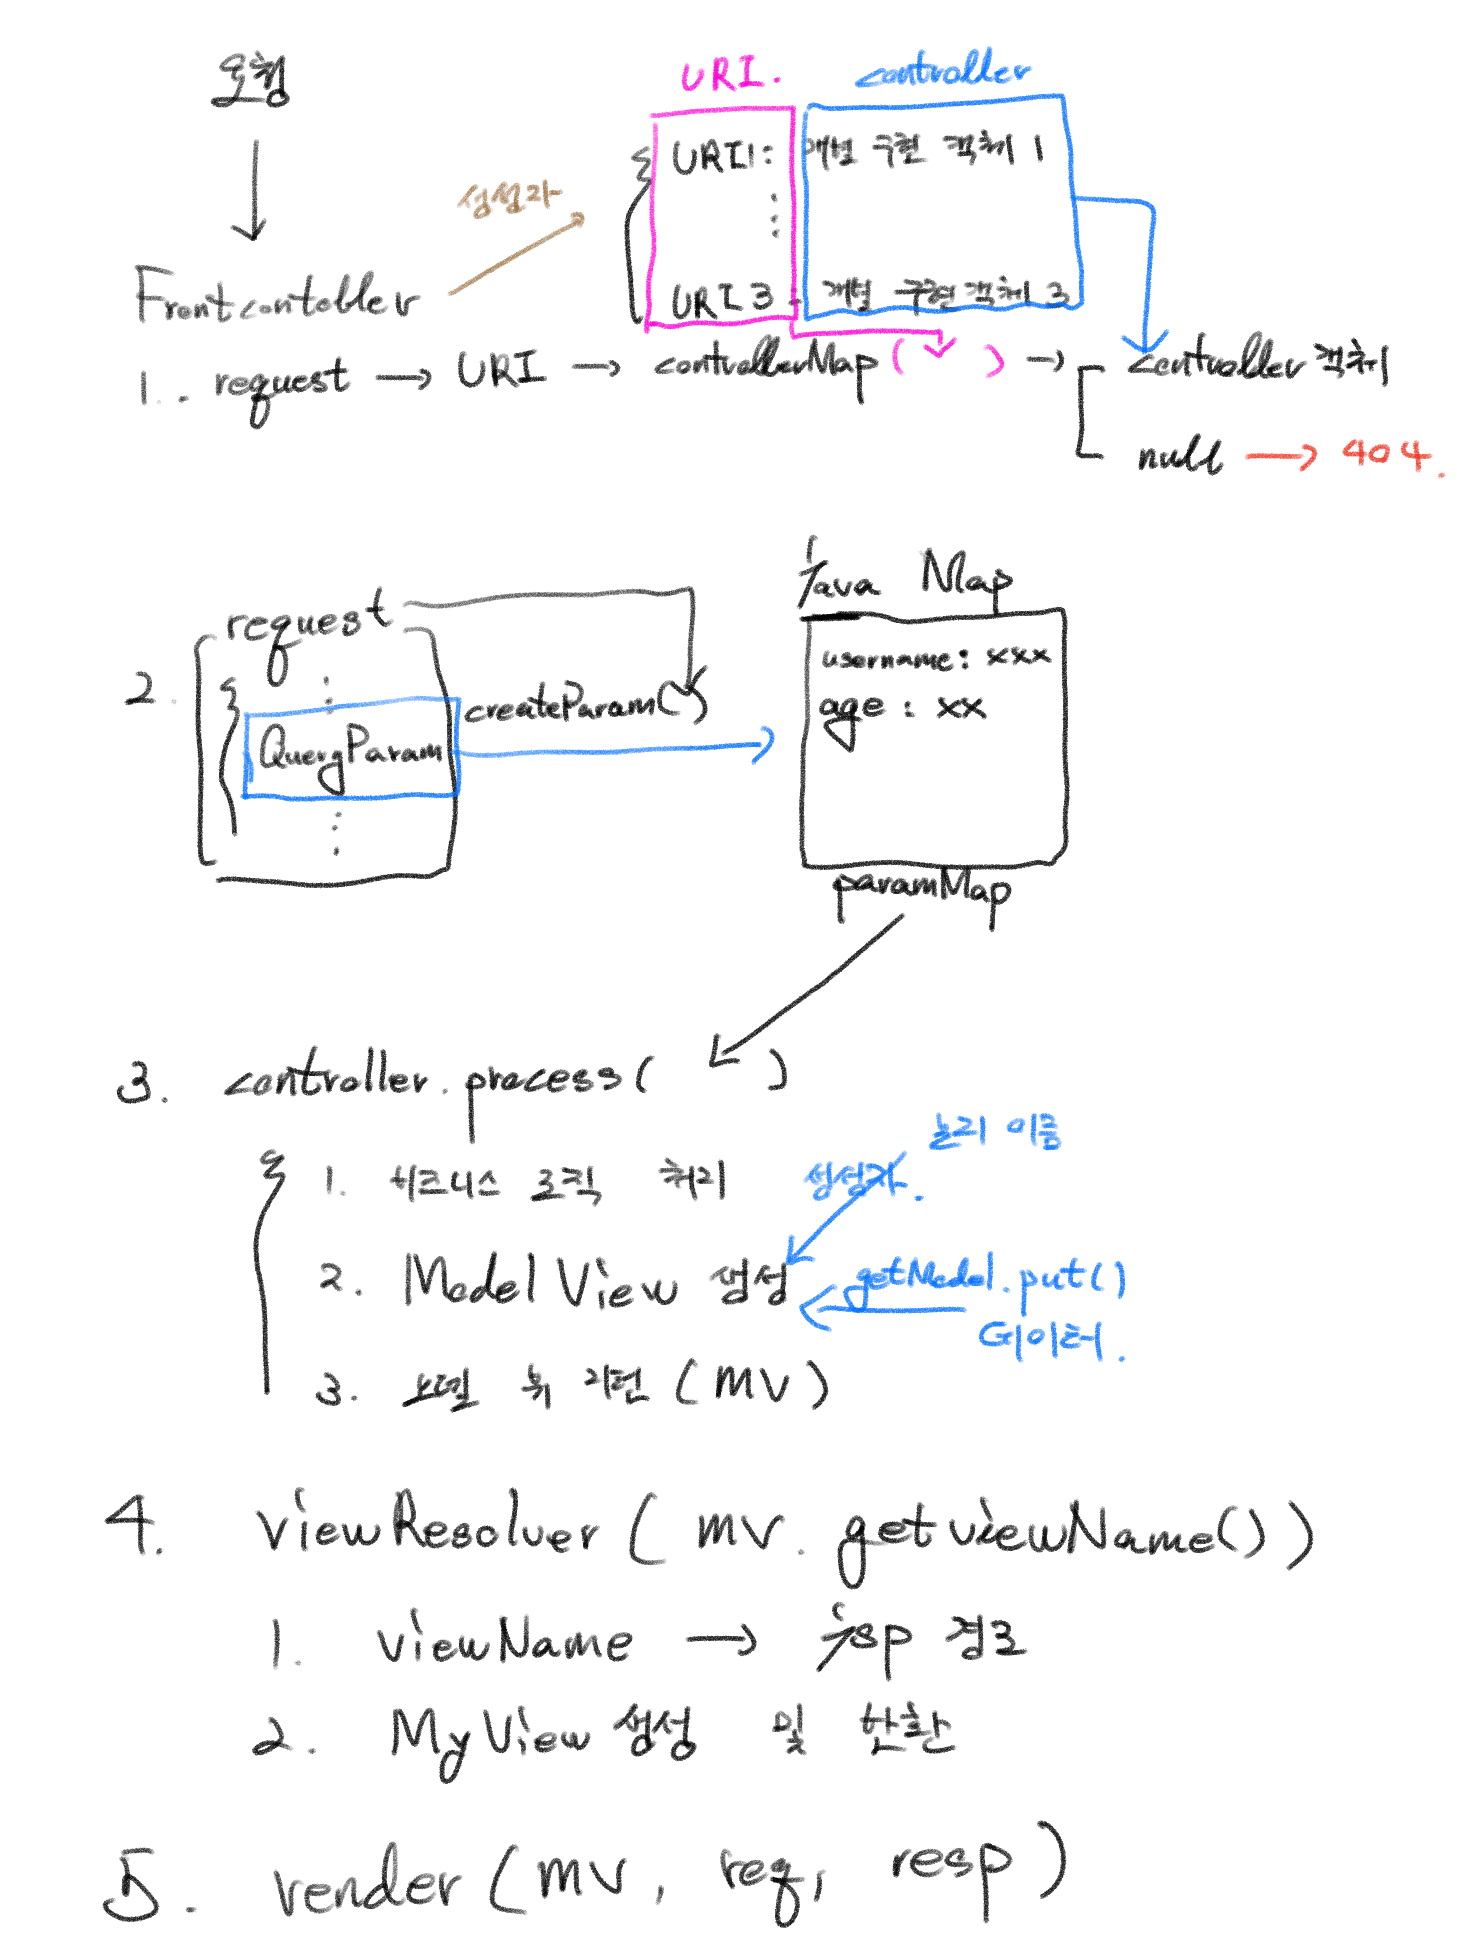 요청
URI. controller
URI1: 개별 구현 객체 1
생성자
Frontcontoller
URI3: 개별 구현 객체 3
1. request → URI → controllerMap( ) → controller 객체
null → 404.
Java Map
request
username: xxx
2. createParam( )
age : xx
QueryParam
paramMap
3. controller.process( )
논리 이름
1. 비즈니스 로직 처리 생성자.
2. ModelView 생성 getModel.put()
데이터.
3. 모델 뷰 리턴 (mv)
4. viewResolver ( mv. getviewName())
1. viewName → jsp 경로
2. MyView 생성 및 반환
5. render (mv, req, resp)